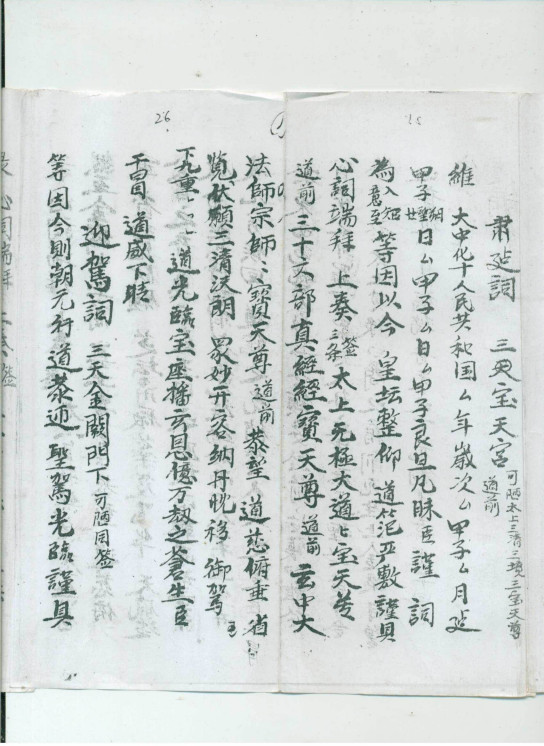 26
肃 词 三天宝天宫 可陋太上三清三境三宝天尊
道前
維 大中化十人民共和国厶年歲次厶甲子厶月
甲子 日厶甲子厶日厶甲子良旦凡昧臣謹 詞
為入短意至等因以今 皇坛整仰道范严敷謹具
心詞端拜 上奏 太上无极大道七宝天尊
道前 三十六部真經經寶天尊 道前 玄中大
法師宗師〻寶天尊 道前 恭望 道慈俯垂 省
覧伏願三清沃朗 眾妙开容納丹 移御駕
下九重 道光臨宝座播玄恩億万劫之蒼生臣
干冒 道威下情
迎駕詞 三天金闕門下 可陋同签
等因今則朝元行道恭迎 聖駕光臨謹具
心詞端拜 上奏 签